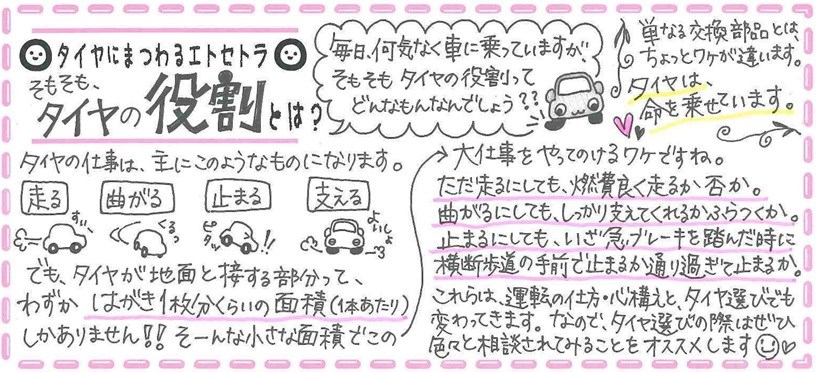 タイヤにまつわるエトセトラ
そもそも、
タイヤの役割とは?
毎日、何気なく車に乗っていますが、
そもそも タイヤの役割って
どんなもんなんでしょう??
単なる交換部品とは、
ちょっとワケが違います。
タイヤは、
命を乗せています。
タイヤの仕事は、主にこのようなものになります。
走る 曲がる 止まる 支える
すぃ〜 くるっ ピタッ !! よいしょ
でも、タイヤが地面と接する部分って、
わずか はがき1枚分くらいの面積(1本あたり)
しかありません!! そーんな小さな面積でこの
大仕事をやってのけるワケですね。
ただ走るにしても、燃費良く走るか否か。
曲がるにしても、しっかり支えてくれるかふらつくか。
止まるにしても、いざ急ブレーキを踏んだ時に
横断歩道の手前で止まるか通り過ぎて止まるか。
これらは、運転の仕方・心構えと、タイヤ選びでも
変わってきます。なので、タイヤ選びの際はぜひ
色々と相談されてみることをオススメします